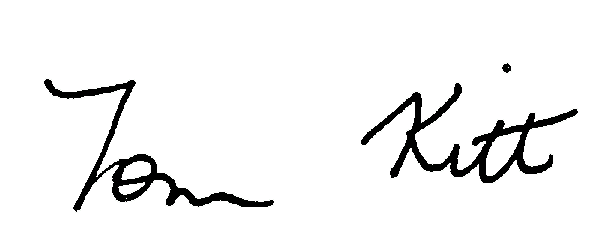 Tom Kitt